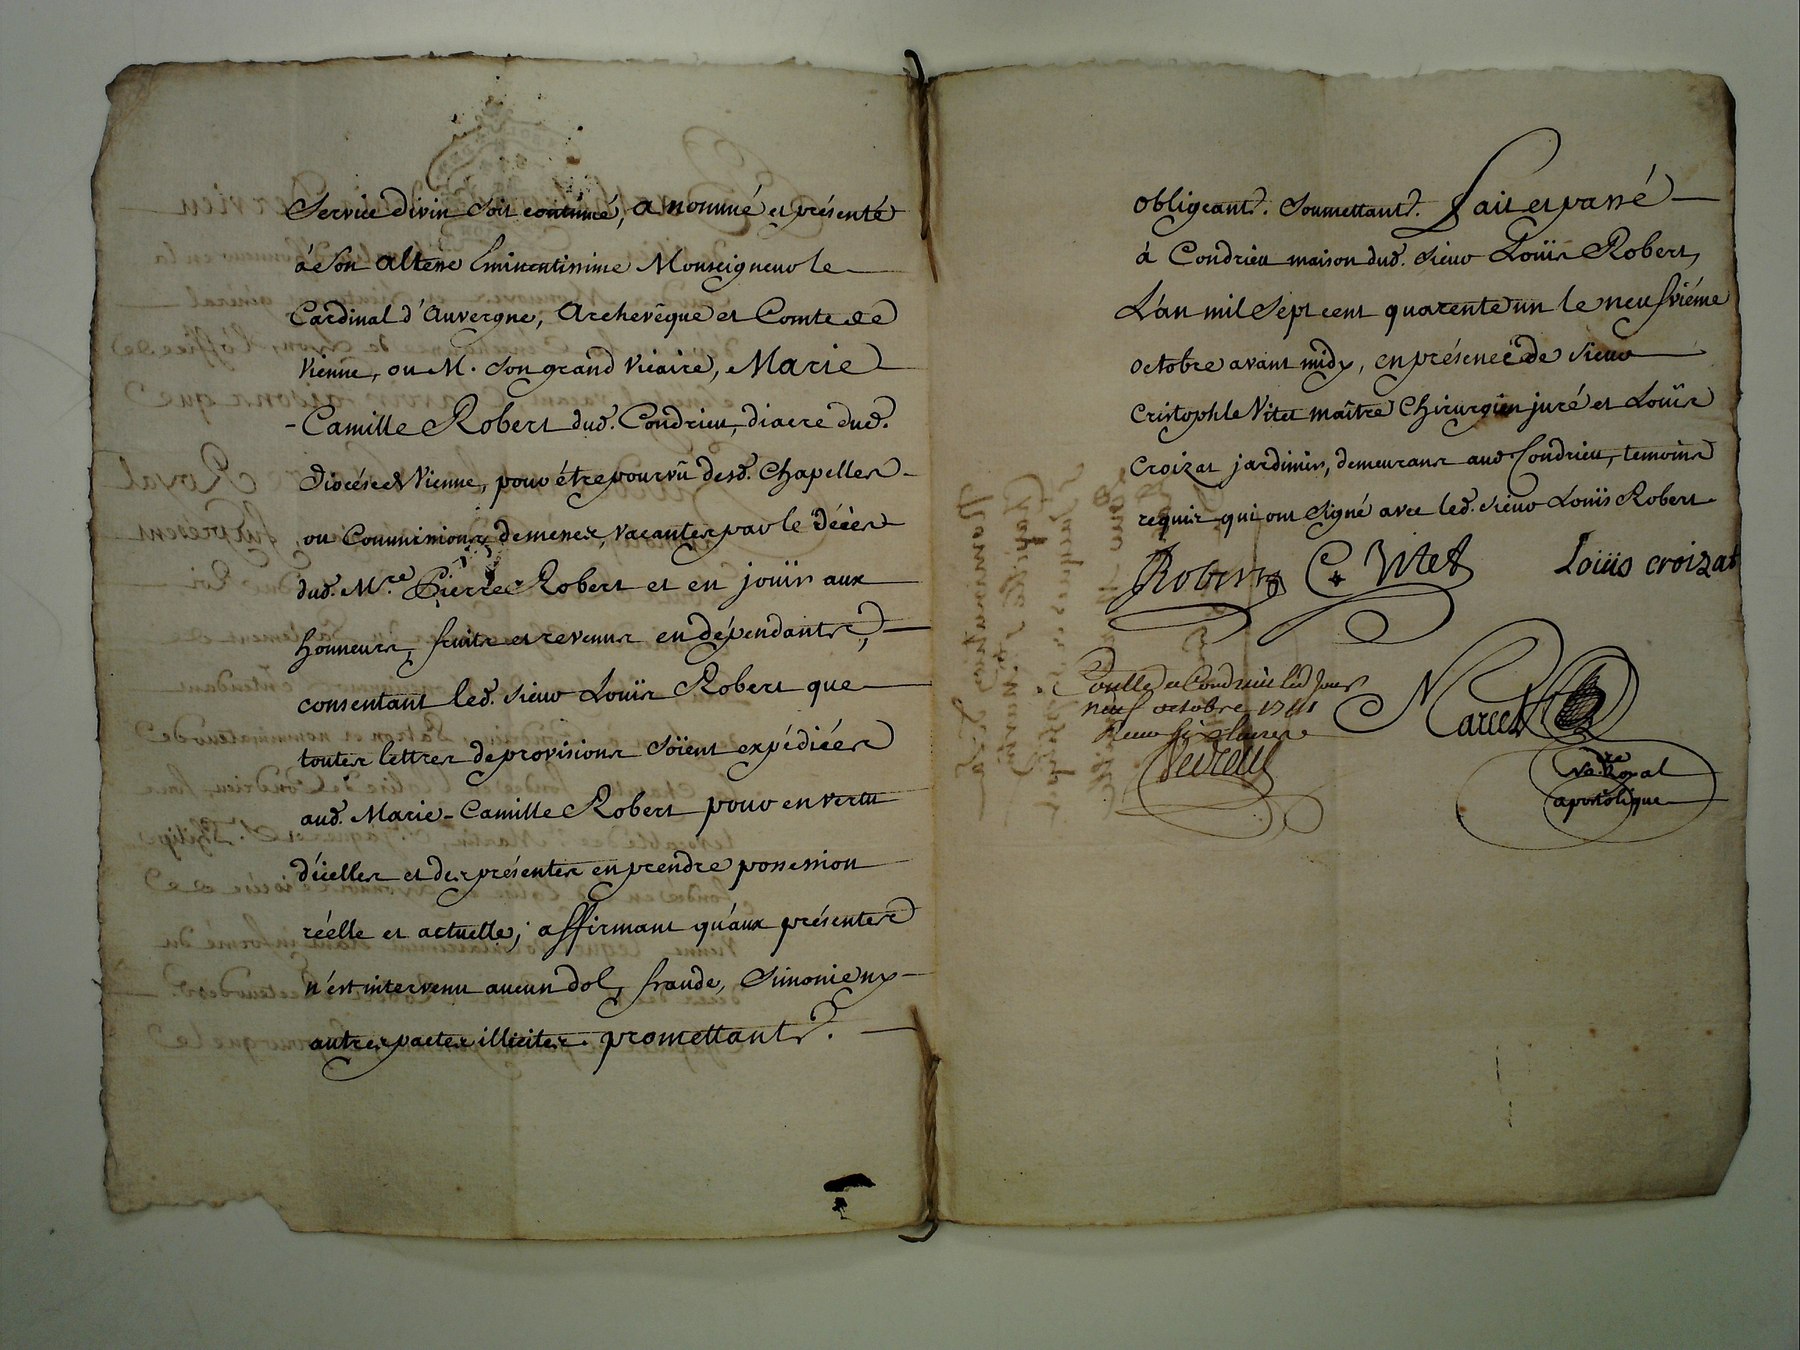 Service divin soit continué, a nommé et présenté
à Son Altesse Eminentissime Monseigneur le
Cardinal d'Auvergne, Archevêque et Comte de
Vienne, ou M. son grand Vicaire, Marie
-Camille Robert dud. Condrieu, diacre dud.
Diocése de Vienne, pour être pourvû desd. Chapelles
ou Commissions de messes, vacantes par le décès
dud. Mre. Pierre Robert et en joüir aux
honneurs, fruits et revenus en dépendants,
consentant led. sieur Loüis Robert que
toutes lettres de provisions soïent expédiées
aud. Marie-Camille Robert pour en vertu
d'icelles et des présentes en prendre possession
réelle et actuelle; affirmant qu'aux présentes
n'est intervenu aucun dol, fraude, simonie ny
autres pactes illicites. promettants.
obligeants. soumettants. fait et passé
à Condrieu maison dud. sieur Loüis Robert,
L'an mil sept cent quarente un le neufviéme
octobre avant midy, en présence de sieur
Cristophle Vitet maître Chirurgien juré et Loüis
Croizat jardinier, demeurans aud. Condrieu, temoins
requis qui ont signé avec led. sieur Loüis Robert
Robert C. Vitet Loüis croizat
Conllé a Condrieu led Jour
neuf octobre 1741
Marcet
Nre Royal
apostolique